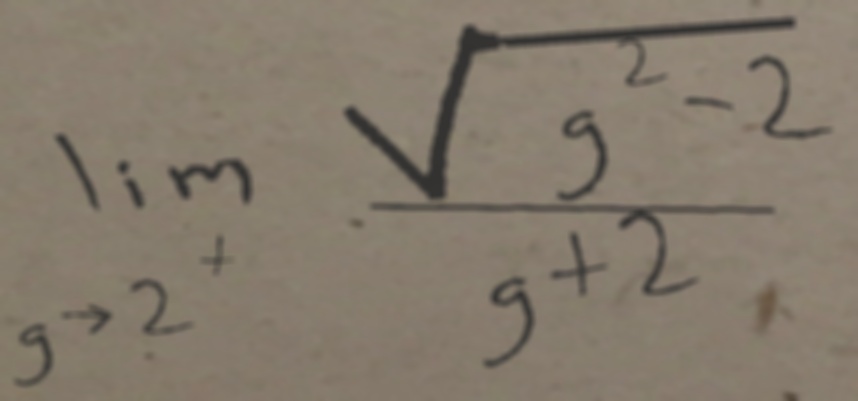 lim_{g \to 2^+} \frac{\sqrt{g^2 - 2}}{g + 2}